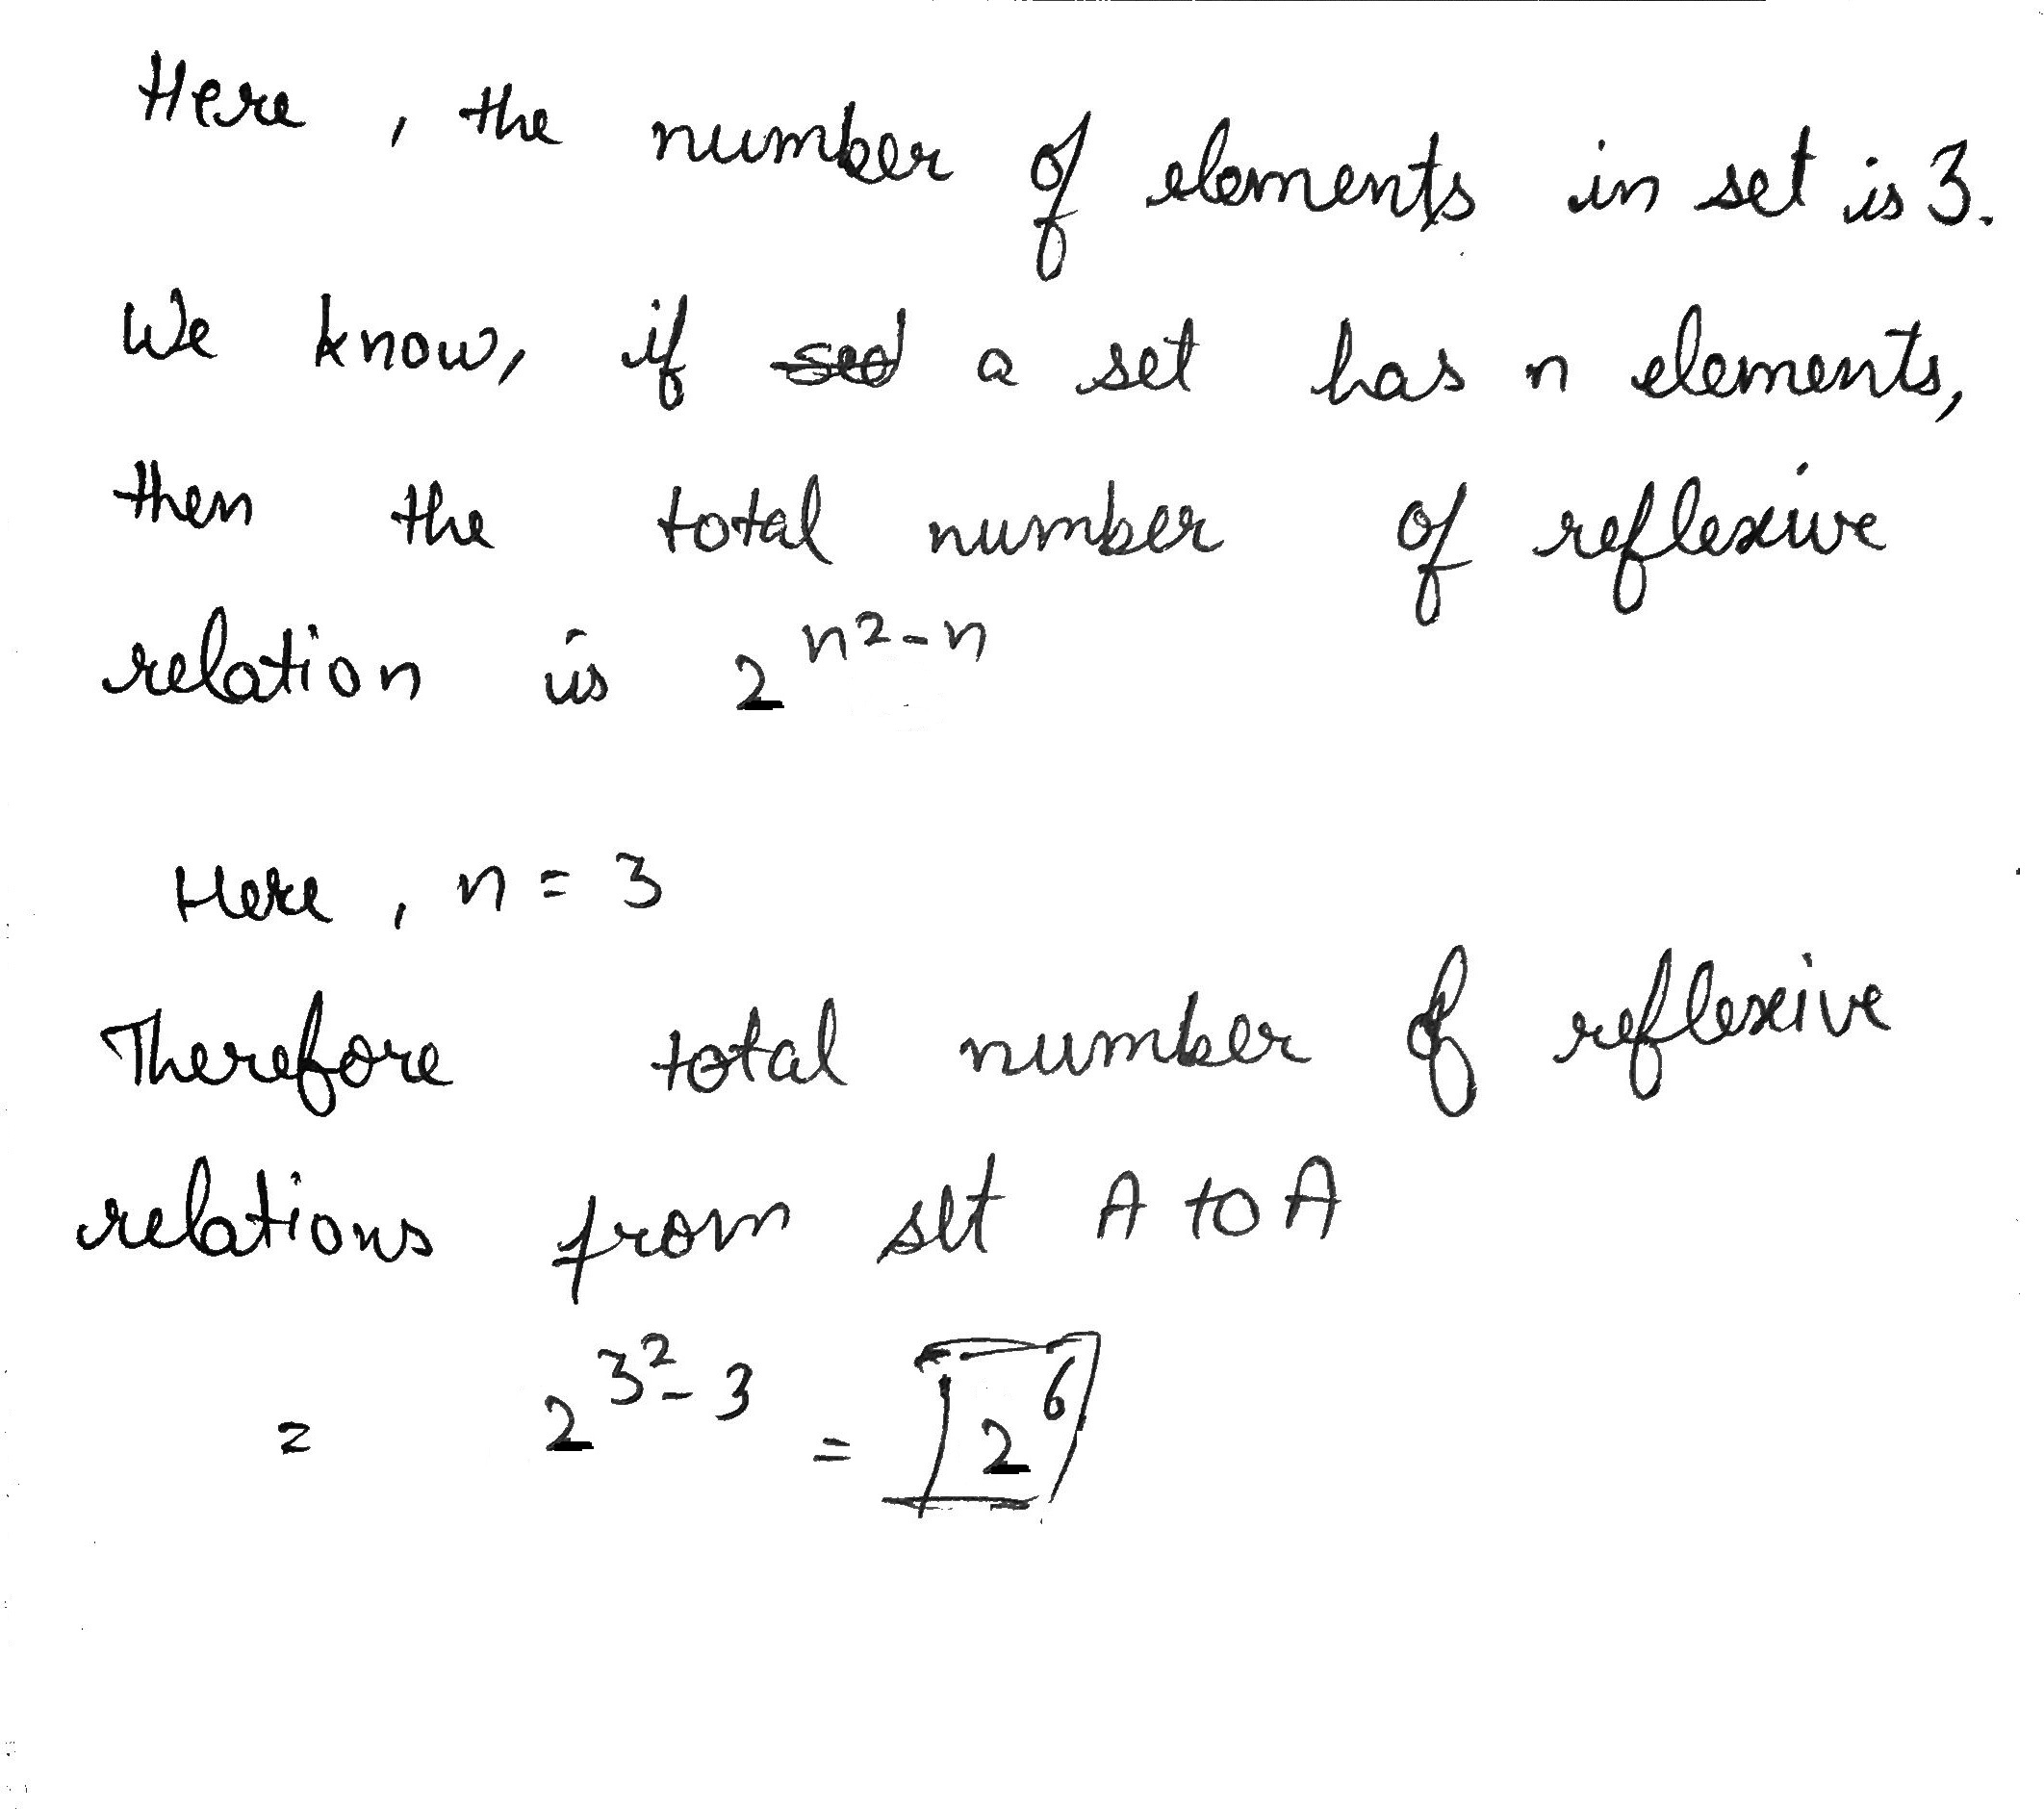 Here, the number of elements in set is 3.
We know, if a set has n elements,
then the total number of reflexive
relation is 2^{n^2-n}
Here, n = 3
Therefore total number of reflexive
relations from set A to A
= 2^{3^2-3} = 2^6